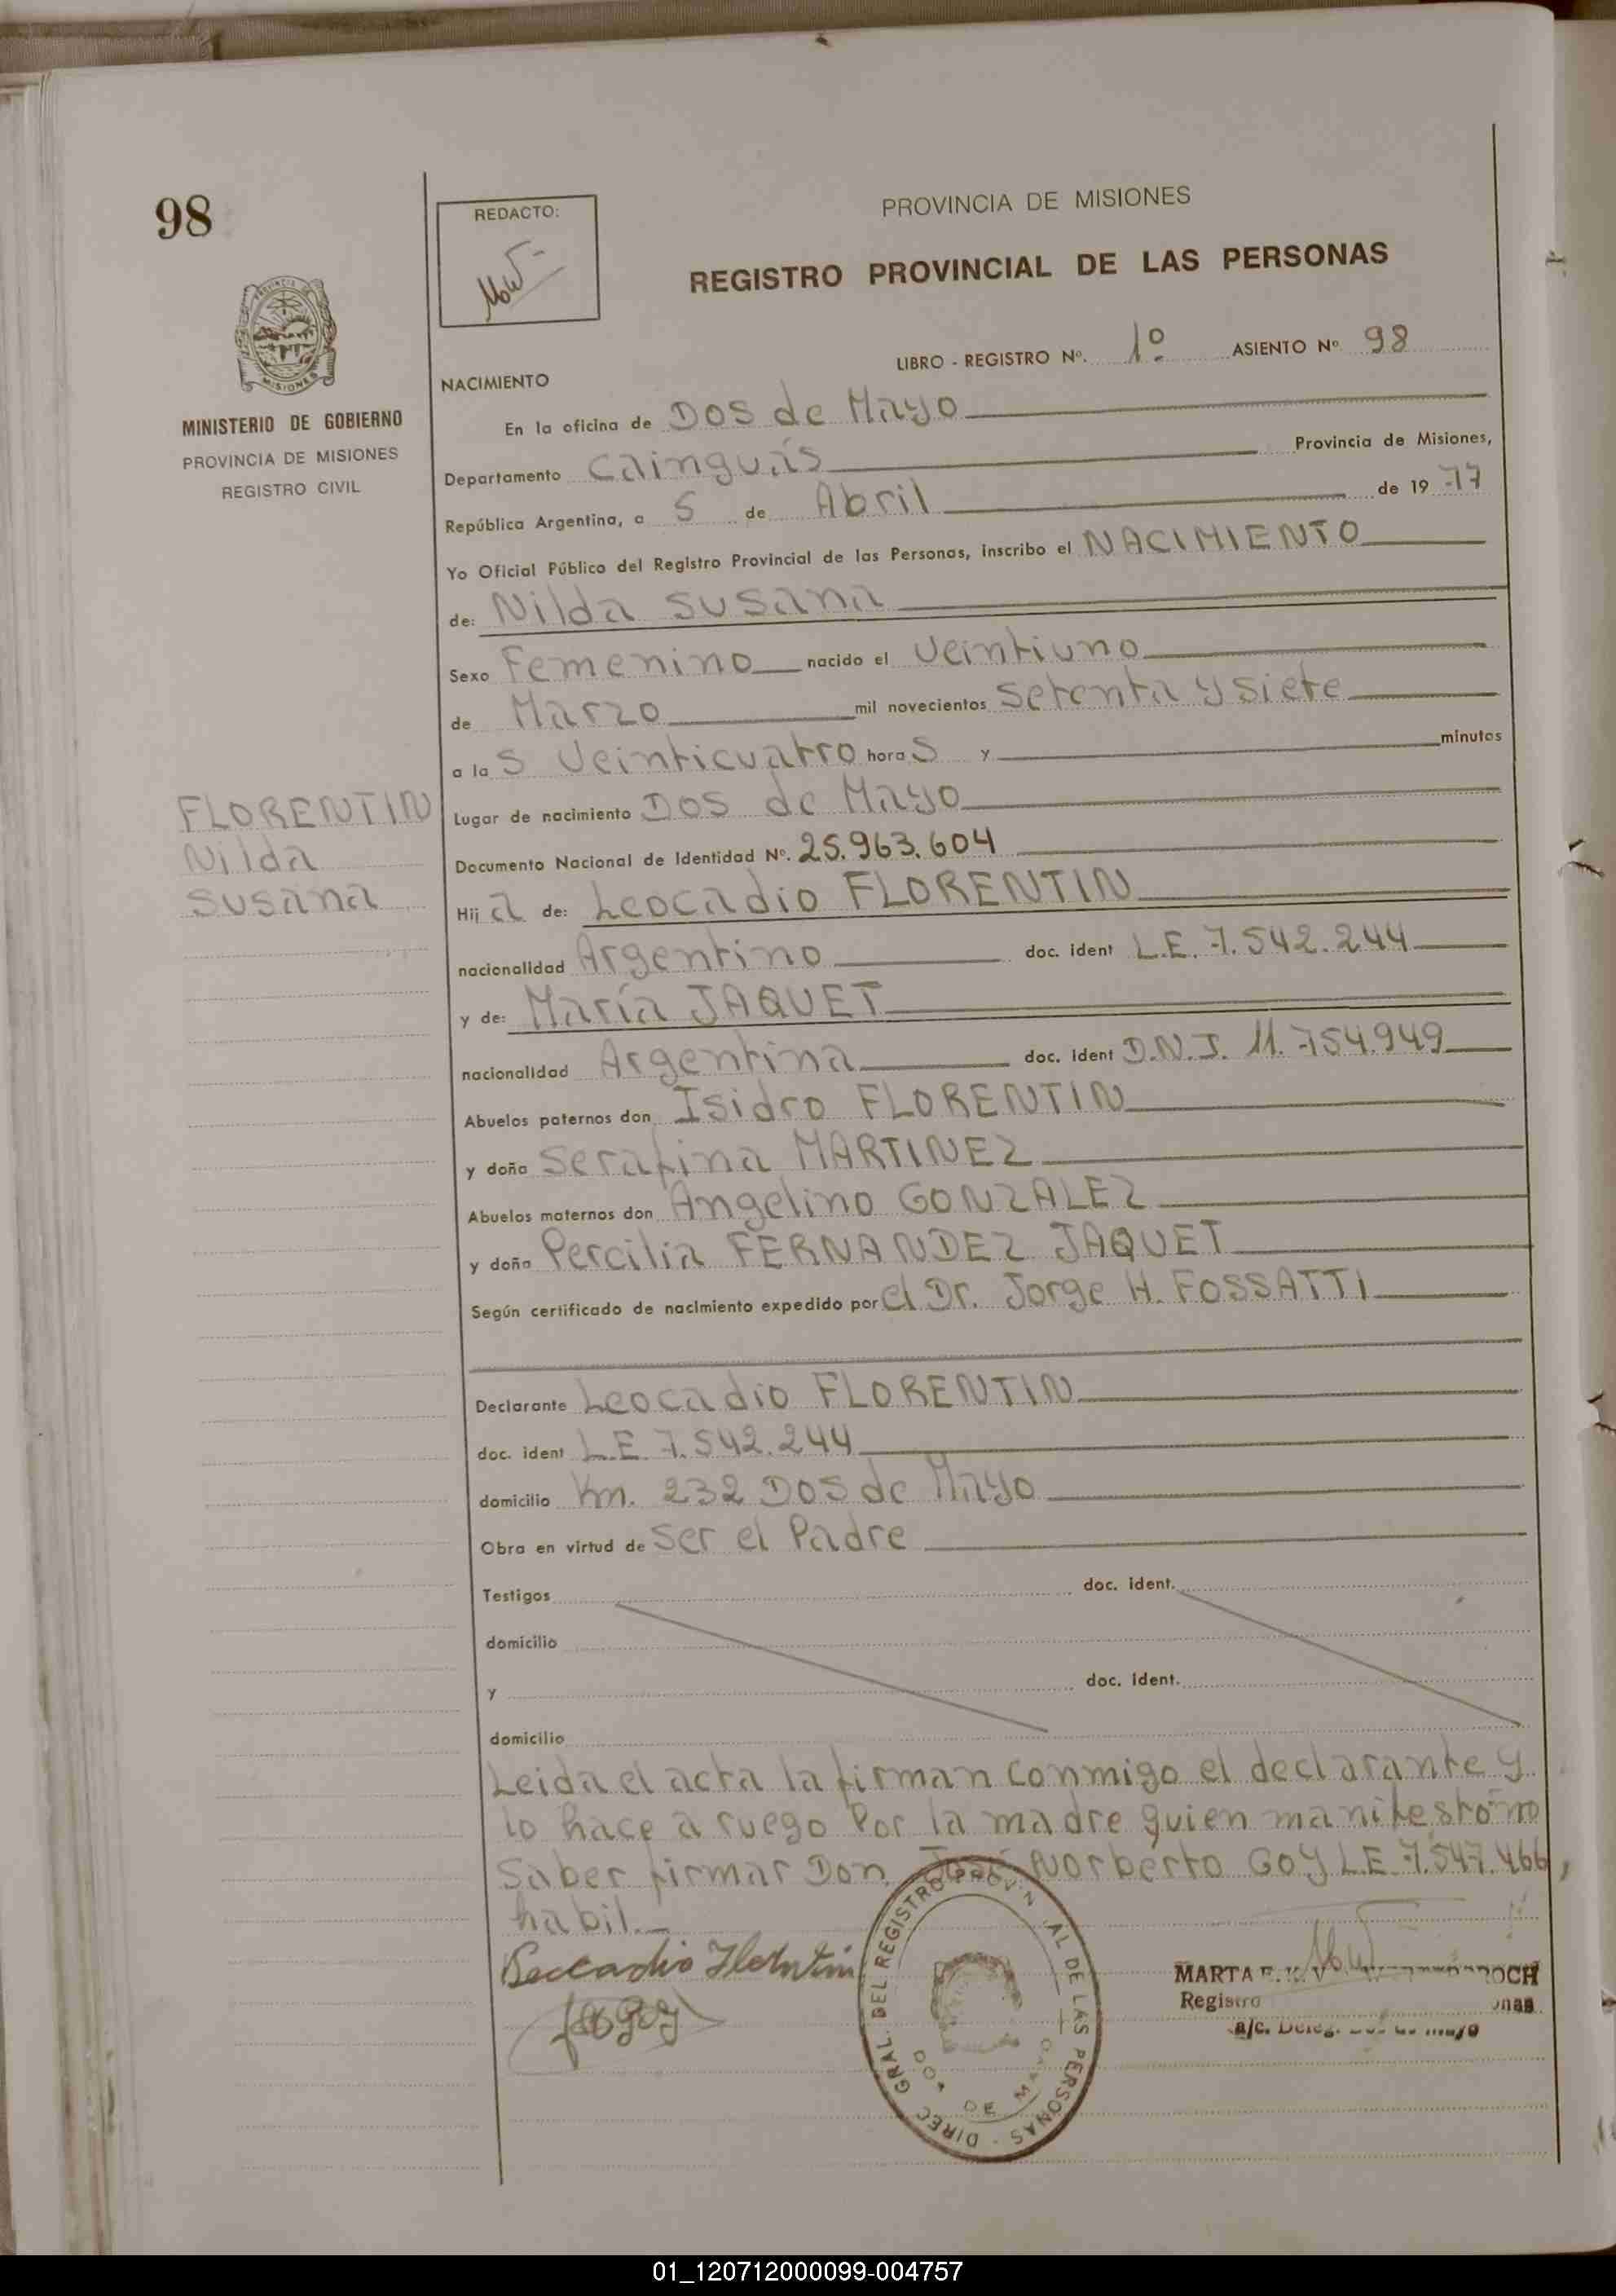 98
REDACTO:
PROVINCIA DE MISIONES
REGISTRO PROVINCIAL DE LAS PERSONAS
LIBRO - REGISTRO Nº. 1º ASIENTO Nº 98
MISIONES
MINISTERIO DE GOBIERNO
PROVINCIA DE MISIONES
REGISTRO CIVIL
NACIMIENTO
En la oficina de Dos de Mayo
Departamento Cainguás Provincia de Misiones,
República Argentina, a 5 de Abril de 19 77
Yo Oficial Público del Registro Provincial de las Personas, inscribo el NACIMIENTO
de: Nilda Susana
Sexo Femenino nacido el Veintiuno
de Marzo mil novecientos setenta y siete
a la s Veinticuatro hora s y minutos
FLORENTIN
Nilda
Susana
Lugar de nacimiento Dos de Mayo
Documento Nacional de Identidad Nº. 25.963.604
Hij a de: Leocadio FLORENTIN
nacionalidad Argentino doc. ident L.E. 7.542.244
y de: María JAQUET
nacionalidad Argentina doc. ident D.N.I. 11.754.949
Abuelos paternos don Isidro FLORENTIN
y doña Serafina MARTINEZ
Abuelos maternos don Angelino GONZALEZ
y doña Percilia FERNANDEZ JAQUET
Según certificado de nacimiento expedido por el Dr. Jorge H. FOSSATTI
Declarante Leocadio FLORENTIN
doc. ident L.E. 7.542.244
domicilio Km. 232 Dos de Mayo
Obra en virtud de Ser el Padre
Testigos doc. ident.
domicilio
y doc. ident.
domicilio
Leida el acta la firman conmigo el declarante y
lo hace a ruego Por la madre quien manifestó no
Saber firmar Don José Norberto GOY LE 7.547.466,
habil.
Leocadio Florentin
DIREC GRAL. DEL REGISTRO PROV AL DE LAS PERSONAS
DOS DE MAYO
MARTA
Registro
a/c. Deleg. Dos de Mayo
01_120712000099-004757